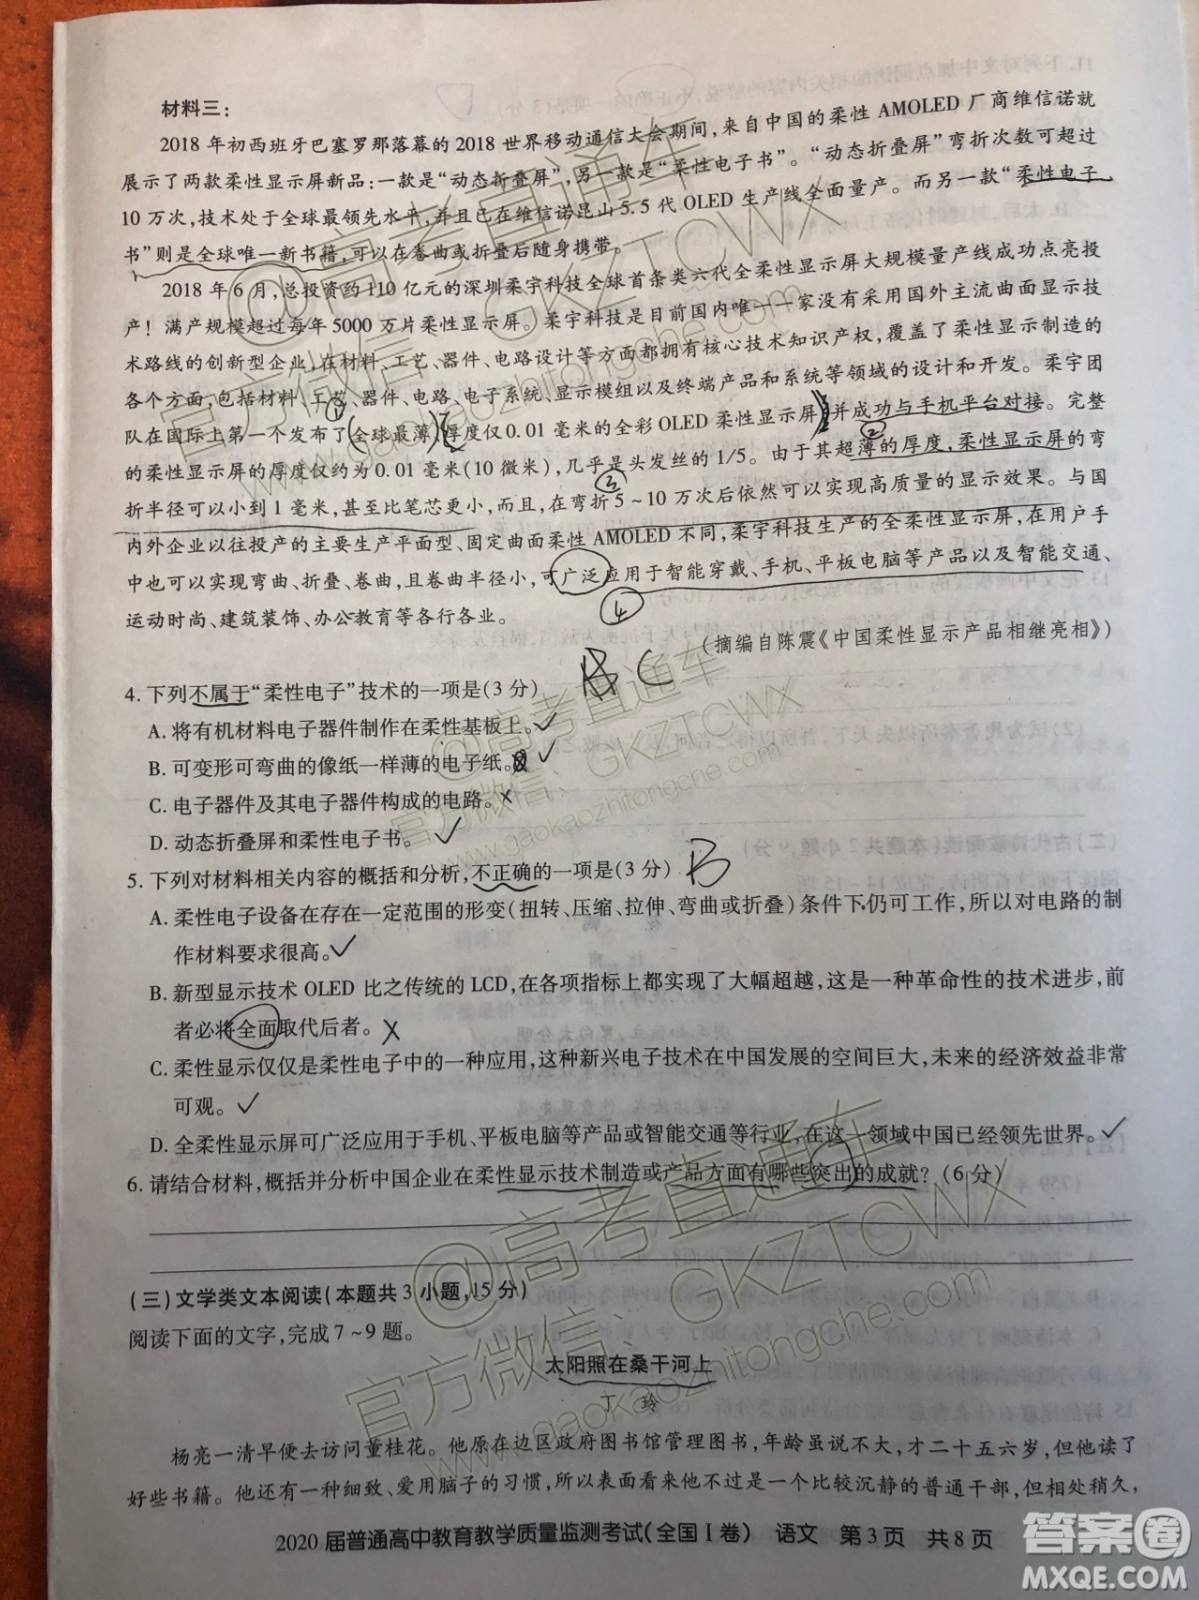 材料三：
2018 年初西班牙巴塞罗那落幕的 2018 世界移动通信大会期间，来自中国的柔性 AMOLED 厂商维信诺就
展示了两款柔性显示屏新品：一款是“动态折叠屏”，另一款是“柔性电子书”。“动态折叠屏”弯折次数可超过
10 万次，技术处于全球最领先水平，并且已在维信诺昆山 5.5 代 OLED 生产线全面量产。而另一款“柔性电子
书”则是全球唯一新书籍，可以在卷曲或折叠后随身携带。
2018 年 6 月，总投资约 110 亿元的深圳柔宇科技全球首条类六代全柔性显示屏大规模量产线成功点亮投
产！满产规模超过每年 5000 万片柔性显示屏。柔宇科技是目前国内唯一一家没有采用国外主流曲面显示技
术路线的创新型企业，在材料、工艺、器件、电路设计等方面都拥有核心技术知识产权，覆盖了柔性显示制造的
各个方面，包括材料、工艺、器件、电路、电子系统、显示模组以及终端产品和系统等领域的设计和开发。柔宇团
队在国际上第一个发布了全球最薄、厚度仅 0.01 毫米的全彩 OLED 柔性显示屏，并成功与手机平台对接。完整
的柔性显示屏的厚度仅约为 0.01 毫米(10 微米)，几乎是头发丝的 1/5。由于其超薄的厚度，柔性显示屏的弯
折半径可以小到 1 毫米，甚至比笔芯更小，而且，在弯折 5～10 万次后依然可以实现高质量的显示效果。与国
内外企业以往投产的主要生产平面型、固定曲面柔性 AMOLED 不同，柔宇科技生产的全柔性显示屏，在用户手
中也可以实现弯曲、折叠、卷曲，且卷曲半径小，可广泛应用于智能穿戴、手机、平板电脑等产品以及智能交通、
运动时尚、建筑装饰、办公教育等各行各业。
(摘编自陈震《中国柔性显示产品相继亮相》)
4. 下列不属于“柔性电子”技术的一项是(3 分) C
A. 将有机材料电子器件制作在柔性基板上。✓
B. 可变形可弯曲的像纸一样薄的电子纸。✓
C. 电子器件及其电子器件构成的电路。×
D. 动态折叠屏和柔性电子书。✓
5. 下列对材料相关内容的概括和分析，不正确的一项是(3 分) B
A. 柔性电子设备在存在一定范围的形变(扭转、压缩、拉伸、弯曲或折叠)条件下仍可工作，所以对电路的制
作材料要求很高。✓
B. 新型显示技术 OLED 比之传统的 LCD，在各项指标上都实现了大幅超越，这是一种革命性的技术进步，前
者必将全面取代后者。×
C. 柔性显示仅仅是柔性电子中的一种应用，这种新兴电子技术在中国发展的空间巨大，未来的经济效益非常
可观。✓
D. 全柔性显示屏可广泛应用于手机、平板电脑等产品或智能交通等行业，在这一领域中国已经领先世界。✓
6. 请结合材料，概括并分析中国企业在柔性显示技术制造或产品方面有哪些突出的成就？(6 分)
(三)文学类文本阅读(本题共 3 小题，15 分)
阅读下面的文字，完成 7～9 题。
太阳照在桑干河上
丁 玲
杨亮一清早便去访问董桂花。他原在边区政府图书馆管理图书，年龄虽说不大，才二十五六岁，但他读了
好些书籍。他还有一种细致、爱用脑子的习惯，所以表面看来他只不过是一个比较沉静的普通干部，但相处稍久，
2020 届普通高中教育教学质量监测考试(全国 I 卷) 语文 第 3 页 共 8 页
@高考直通车
官方微信：GKZTCWX
www.gaokaozhitongche.com
答案圈
MXQE.COM